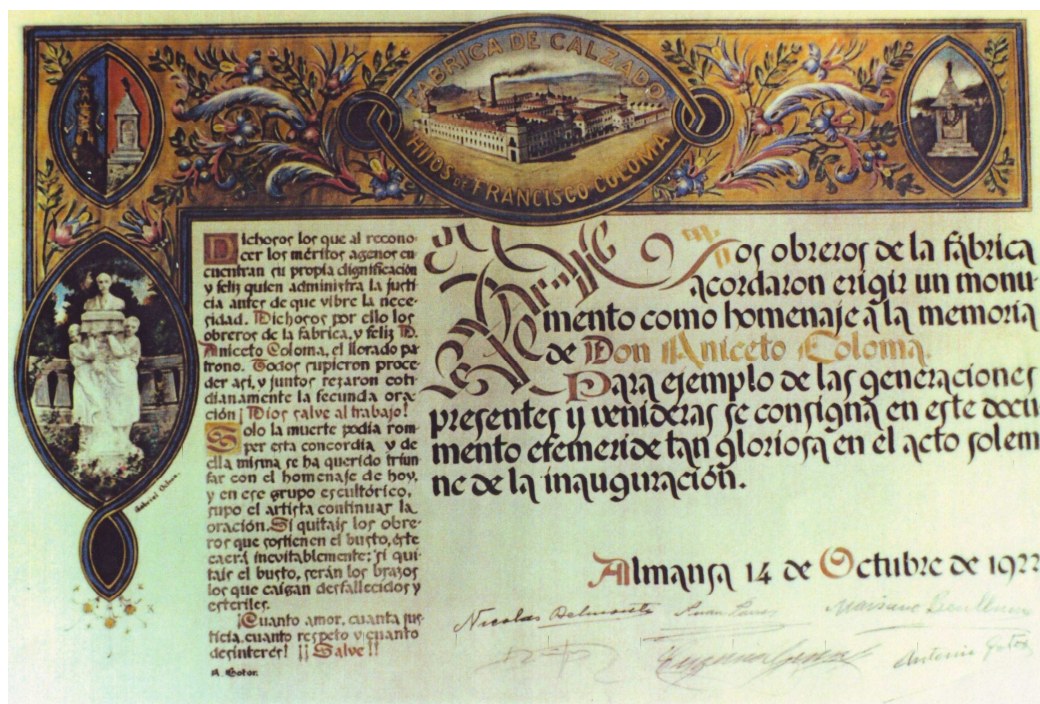 FABRICA DE CALZADO
HIJOS DE FRANCISCO COLOMA
Dichosos los que al recono-
cer los méritos agenos en-
cuentran su propia dignificación
y feliz quien administra la justi
cia antes de que vibre la nece-
sidad. Dichosos por ello los
obreros de la fabrica, y feliz D.
Aniceto Coloma, el llorado pa-
trono. Todos supieron proce-
der asi, y juntos rezaron coti-
dianamente la fecunda ora-
ción ¡Dios salve al trabajo!
Solo la muerte podía rom-
per esta concordia y de
ella misma se ha querido triun
far con el homenaje de hoy,
y en ese grupo escultórico,
supo el artista continuar la
oración. Si quitais los obre-
ros que sostienen el busto, éste
caerá inevitablemente; si qui-
tais el busto, serán los brazos
los que caigan desfallecidos y
esteriles.
¡Cuanto amor, cuanta jus-
ticia, cuanto respeto y cuanto
desinteres! ¡¡Salve!!
A. Gotor.
Gabriel Ochoa
Los obreros de la fábrica
acordaron erigir un monu-
mento como homenaje a la memoria
de Don Aniceto Coloma.
Para ejemplo de las generaciones
presentes y venideras se consigna en este docu
mento efemeride tan gloriosa en el acto solem
ne de la inauguración.
Almansa 14 de Octubre de 1922
Nicolas Belmonte Juan Mariano Benlliure
Antonio Gotor